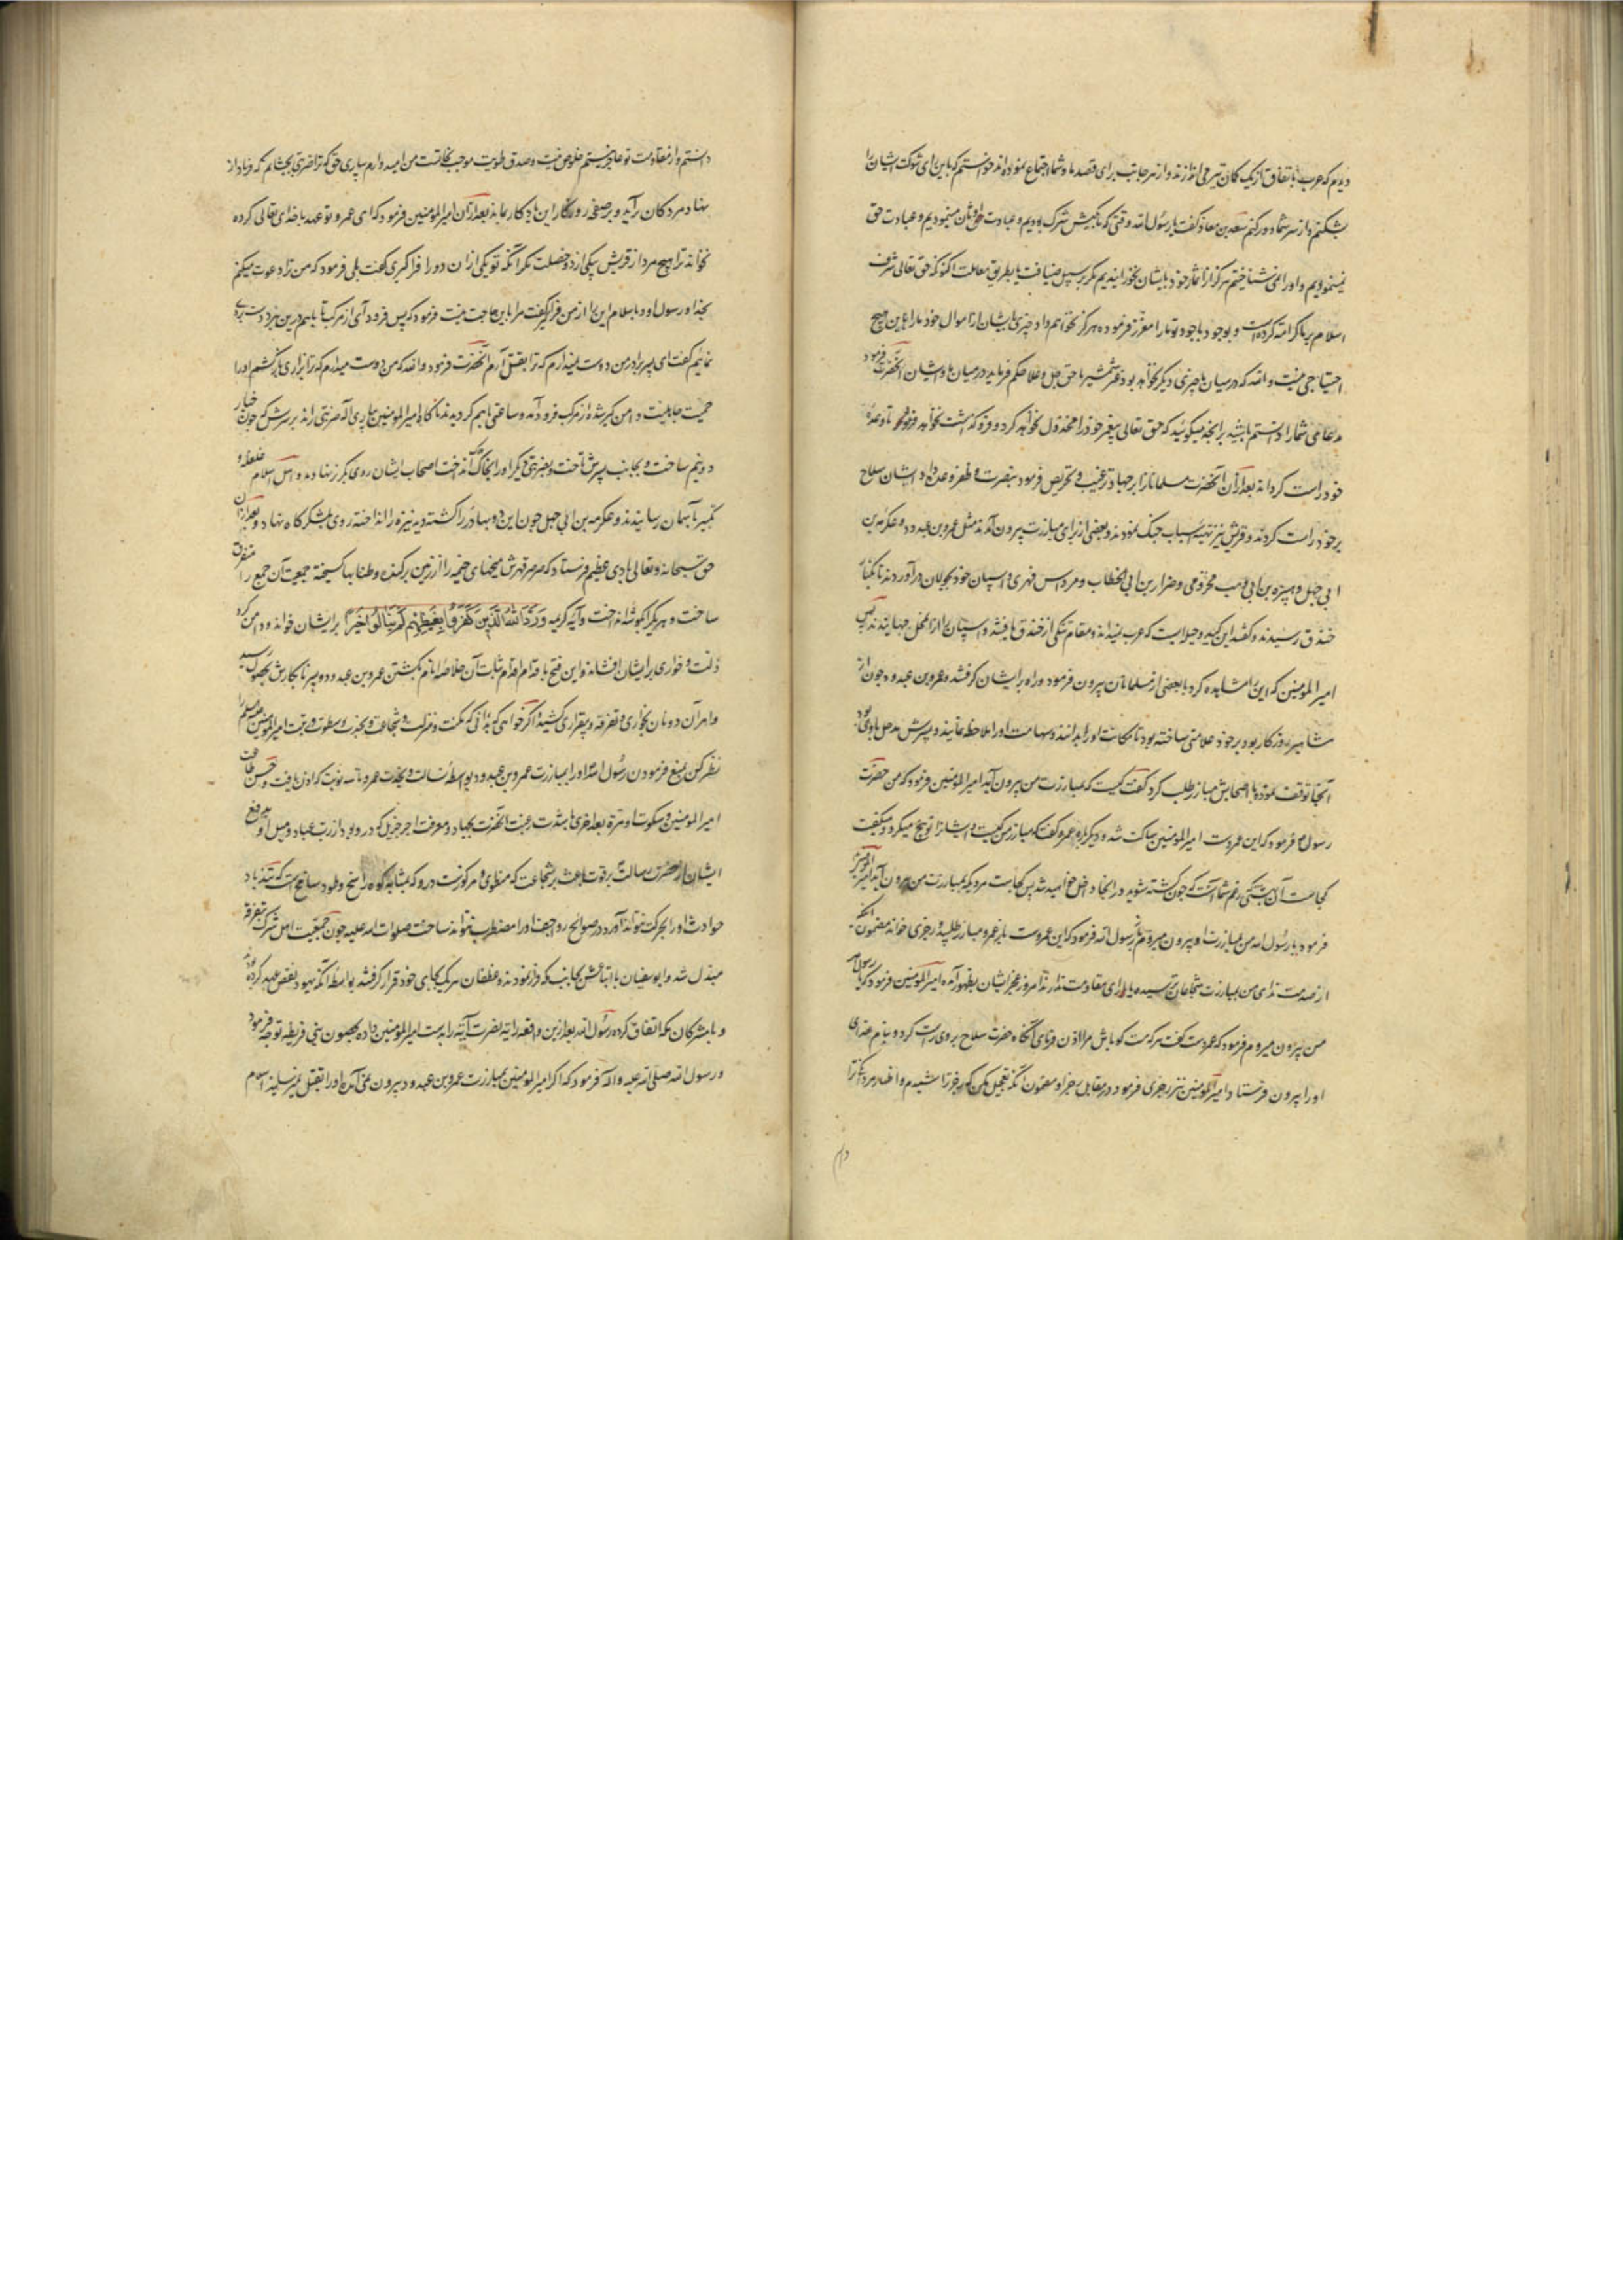 دیدم که عرب باتفاق از یک کمان تیر می اندازند و از هر جانب برای قصد ما و شما اجتماع نموده اند خواستم که باین رای شوکت ایشان را
بشکنم و از سر شما دور کنم سعد بن معاذ گفت یا رسول الله وقتی که ما بکیش شرک بودیم و عبادت اوثان مینمودیم و عبادت حق
نمینمودیم و او را نمی شناختیم هرگز از ثمار خود بایشان نخورانیدیم مگر بر سبیل ضیافت یا بطریق معاملت اکنون که حق تعالی شرف
اسلام بر ما کرامت کرده است و بوجود باجود تو ما را معزز فرموده هرگز نخواهیم داد چیزی بایشان از اموال خود ما را باین هیچ
احتیاجی نیست والله که در میان ما چیزی دیگر نخواهد بود غیر شمشیر تا حق جل و علا حکم فرماید در میان ما و ایشان آنحضرت فرمود
مدعای شما را دانستم باشید برانچه میگوئید که حق تعالی پیغمبر خود را مخذول نخواهد کرد و فرو گذاشت نخواهد فرمود تا وعدهٔ
خود راست گرداند بعد از آن آنحضرت مسلمانان را بر جهاد ترغیب و تحریص فرمود بنصرت و ظفر وعده داد ایشان سلاح
بر خود راست کردند و قریش نیز تهیه اسباب جنگ نمودند و بعضی از برای مبارزت بیرون آمدند مثل عمرو بن عبدود و عکرمه بن
ابی جهل و هبیره بن ابی وهب مخزومی و ضرار بن ابی الخطاب و مرداس فهری و اسپان خود بجولان درآوردند تا بکنار
خندق رسیدند و گفتند این کید و حیله ایست که عرب نمیداند و مقام تنگی از خندق یافتند و اسپان را از آن محل جهانیدند پس
امیر المومنین که این را مشاهده کرد با بعضی از مسلمانان بیرون فرمود و راه بر ایشان گرفتند و عمرو بن عبدود چون از
مشاهیر روزگار بود بر خود علامتی ساخته بود تا مکانت او را بدانند و مهابت او را ملاحظه نمایند و پسرش حسل با وی بود
آنجا توقف نموده با اصحابش مبارز طلب کرد گفت کیست که بمبارزت من بیرون آید امیر المومنین فرمود که من حضرت
رسول فرمود که این عمروست امیر المومنین ساکت شد و دیگر باره عمرو گفت که مبارز من کیست و ایشان را توبیخ میکرد و میگفت
کجاست آن بهشتی که زعم شما آنست که چون کشته شوید در انجا داخل خواهید شد پس کجاست مردی که بمبارزت من بیرون آید امیر المومنین
فرمود یا رسول الله من بمبارزت او بیرون میروم باز رسول الله فرمود که این عمروست باز عمرو مبارز طلبید و رجزی خواند مضمون آنکه
از صدمت ندای من بمبارزت شجاعان ترسیده یارای مقاومت ندارند امروز عجز ایشان بظهور آمده امیر المومنین فرمود که یا رسول الله
من بیرون میروم فرمود که عمروست گفت هر که هست گو باش مرا اذن فرمای آنگاه حضرت سلاح بر وی راست کرد و بنام خدای
او را بیرون فرستاد امیر المومنین نیز رجزی فرمود در مقابل رجز او مضمون آنکه تعجیل مکن که رجز ترا شنیدم و اظهار مردانگی ترا
دانستم و از مقاومت تو عاجز نیستم خلوص نیت و صدق طویت موجب نجاتست من امید وارم بیاری حق که ترا ضربتی بچشانم که فریاد از
نهاد مردکان برآید و بر صفحه روزگار این یادگار بماند بعد از آن امیر المومنین فرمود که ای عمرو تو عهد با خدای تعالی کرده
نخواند ترا هیچ مرد از قریش بیکی از دو خصلت مگر آنکه تو یکی از ان دو را فرا گیری گفت بلی فرمود که من ترا دعوت میکنم
بخدا و رسول او و باسلام این را از من فرا گیر گفت مرا باین حاجت نیست فرمود که پس فرود آی از مرکب تا با هم درین نبرد دست بردی
نمائیم گفت ای پسر برادر من دوست نمیدارم که ترا بقتل آرم آنحضرت فرمود والله که من دوست میدارم که ترا بزاری زار بکشم او را
حمیت جاهلیت دامن گیر شد و از مرکب فرود آمد و ساعتی با هم گردیدند ناگاه امیر المومنین بیاری اله ضربتی راند بر سرش که چون خیار
دو نیم ساخت و بجانب پسرش تاخت و بضربتی دیگر او را بخاک انداخت اصحاب ایشان روی بگریز نهادند و اهل اسلام غلغله و
تکبیر بآسمان رسانیدند و عکرمه بن ابی جهل چون این دو بهادر را کشته دید نیزه را انداخته روی بلشکرگاه نهاد و بعد از آن
حق سبحانه و تعالی بادی عظیم فرستاد که صرصر قهرش میخهای خیمه را از زمین برکنده و طنابها گسیخته جمعیت آن جمع را متفرق
ساخت و هر یک را بگوشه انداخت و آیه کریمه وَرَدَّ اللهُ الَّذِینَ کَفَرُوا بِغَیْظِهِمْ لَمْ یَنَالُوا خَیْرًا بر ایشان خواند و دامن گرد
ذلت و خواری بر ایشان افشاند و این فتح باقدام اقدام ثبات آن خلاصه انام بکشتن عمرو بن عبدود و پسر نابکارش بحصول رسید
و امر آن دونان بخواری و تفرقه و بیقراری کشید اگر خواهی که بدانی که مکنت و منزلت و شجاعت و نجدت و سطوت و رتبت امیر المومنین علیه السلام را
نظر کن بمنع فرمودن رسول الله او را بمبارزت عمرو بن عبدود بواسطه بسالت و نجدت عمرو تا سه نوبت که اذن یافت و حسن طاعت
امیر المومنین و سکوت او مرة بعد اخری با شدت رغبت آنحضرت بجهاد و معرفت اجر جزیل که در و بود از رب عباد و میل او بدفع
ایشان از حضرت رسالت بر قوت باعث بر شجاعت که منطوی و مرکوزست درو که بمثابه کوه راسخ و طود سامخ است که تندباد
حوادث او را بحرکت نتواند آورد و صوایح رواجف او را مضطرب نتواند ساخت صلوات الله علیه چون جمعیت اهل شرک بتفرقه
مبدل شد و ابوسفیان با اتباعش بجانب مکه فرار نمودند و غطفان هر یک بجای خود قرار گرفتند بواسطه آنکه یهود نقض عهد کرده بودند
و با مشرکان مکه اتفاق کرده رسول الله بعد ازین واقعه رایه نصرت آیه را بدست امیر المومنین داده بحصون بنی قریظه توجه فرمود
و رسول الله صلی الله علیه و آله فرمود که اگر امیر المومنین بمبارزت عمرو بن عبدود بیرون نمی آمد و او را بقتل نمیرسانید اسلام